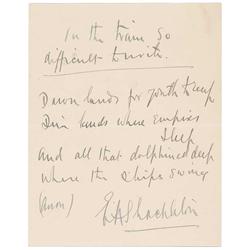 In the train so
difficult to write.
Dawn lands for youth to reap
Dim lands where empires
sleep
And all that dolphined deep
Where the ships swing
(anon)
E H Shackleton